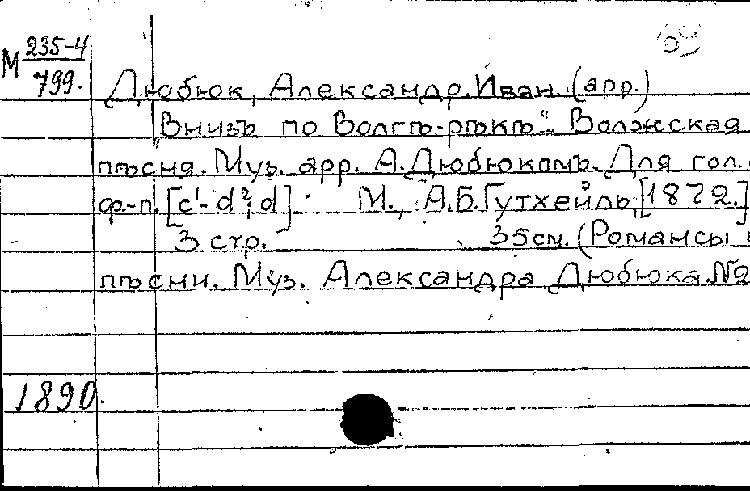 М 235-4
799.
Дюбюк, Александр Иван. (арр.)
"Внизъ по Волгѣ-рѣкѣ". Волжская
пѣсня. Муз. арр. А. Дюбюкомъ. Для гол. с
ф.-п. [c¹-d²; d] М., А.Б. Гутхейль, [1872.]
3 стр. 35 см. (Романсы и
пѣсни. Муз. Александра Дюбюка. №2
1890.